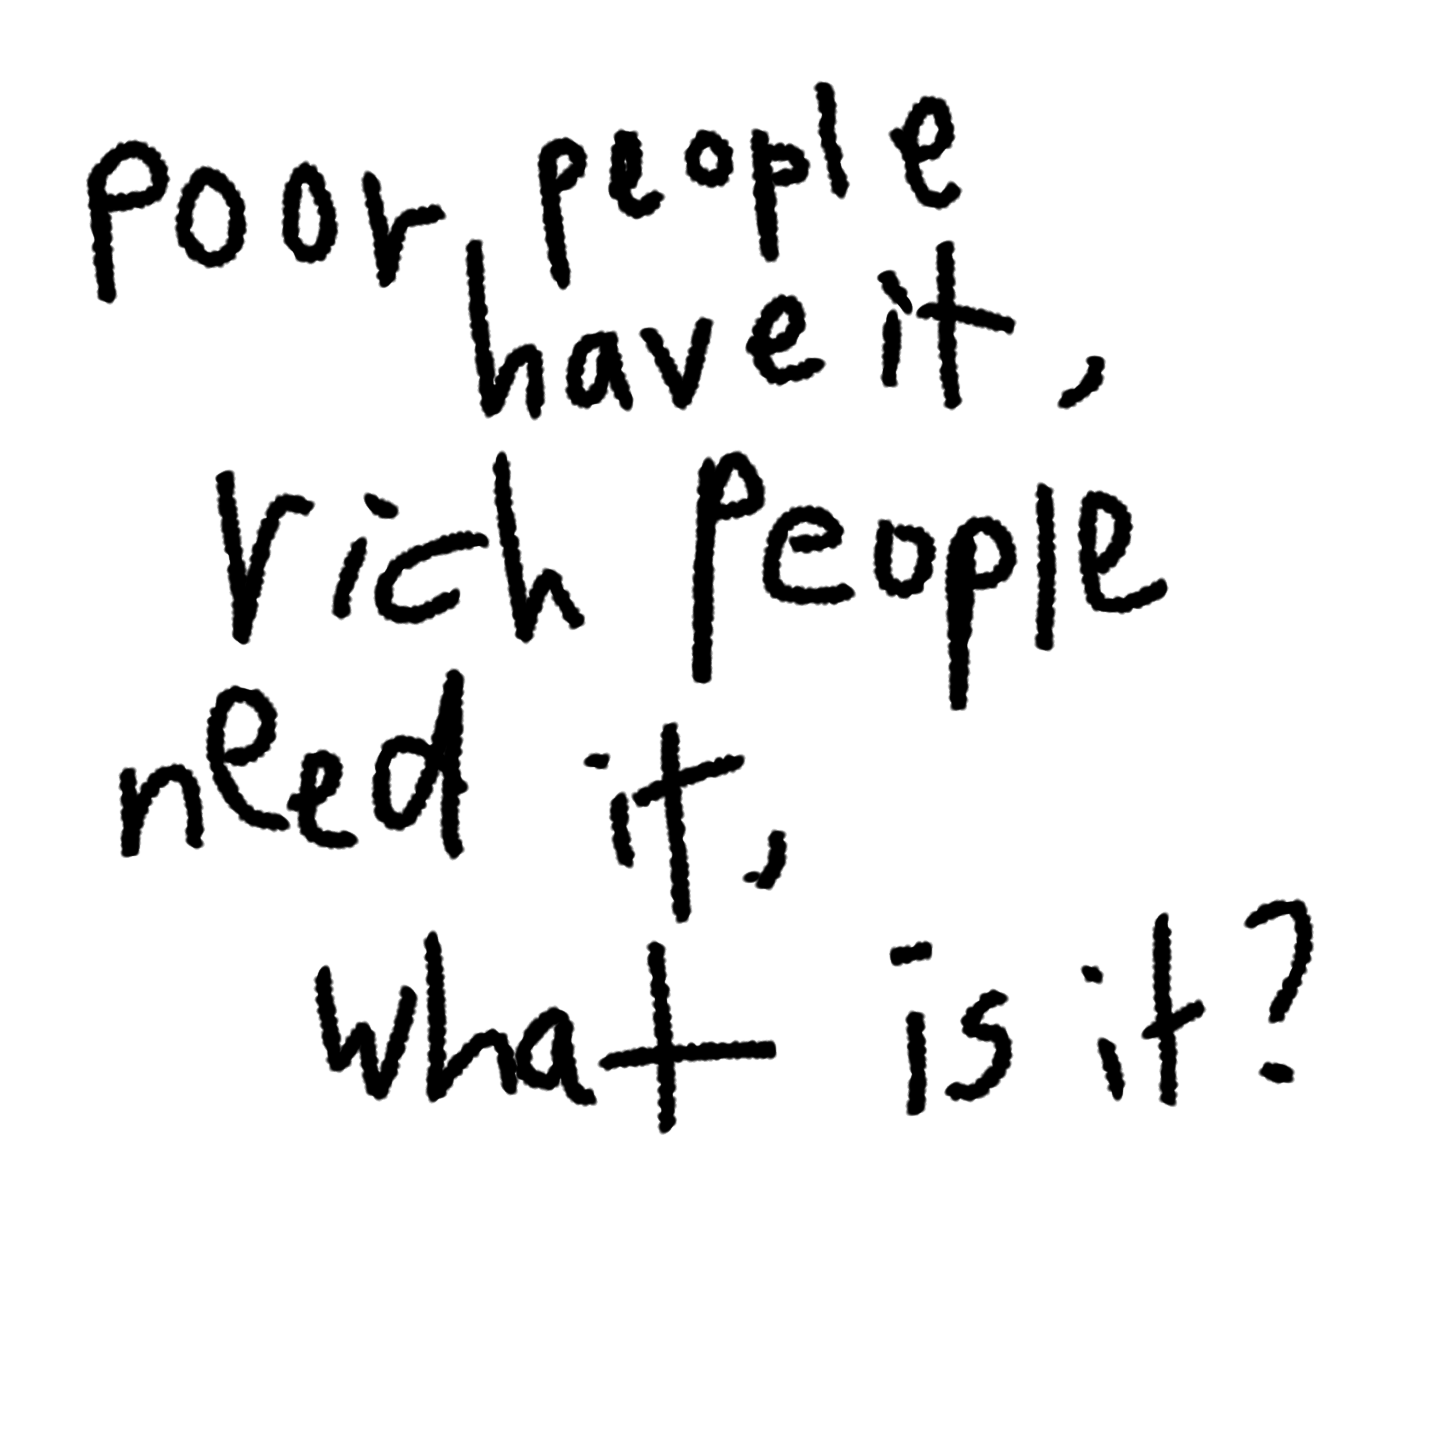 poor people
have it,
rich people
need it,
what is it?